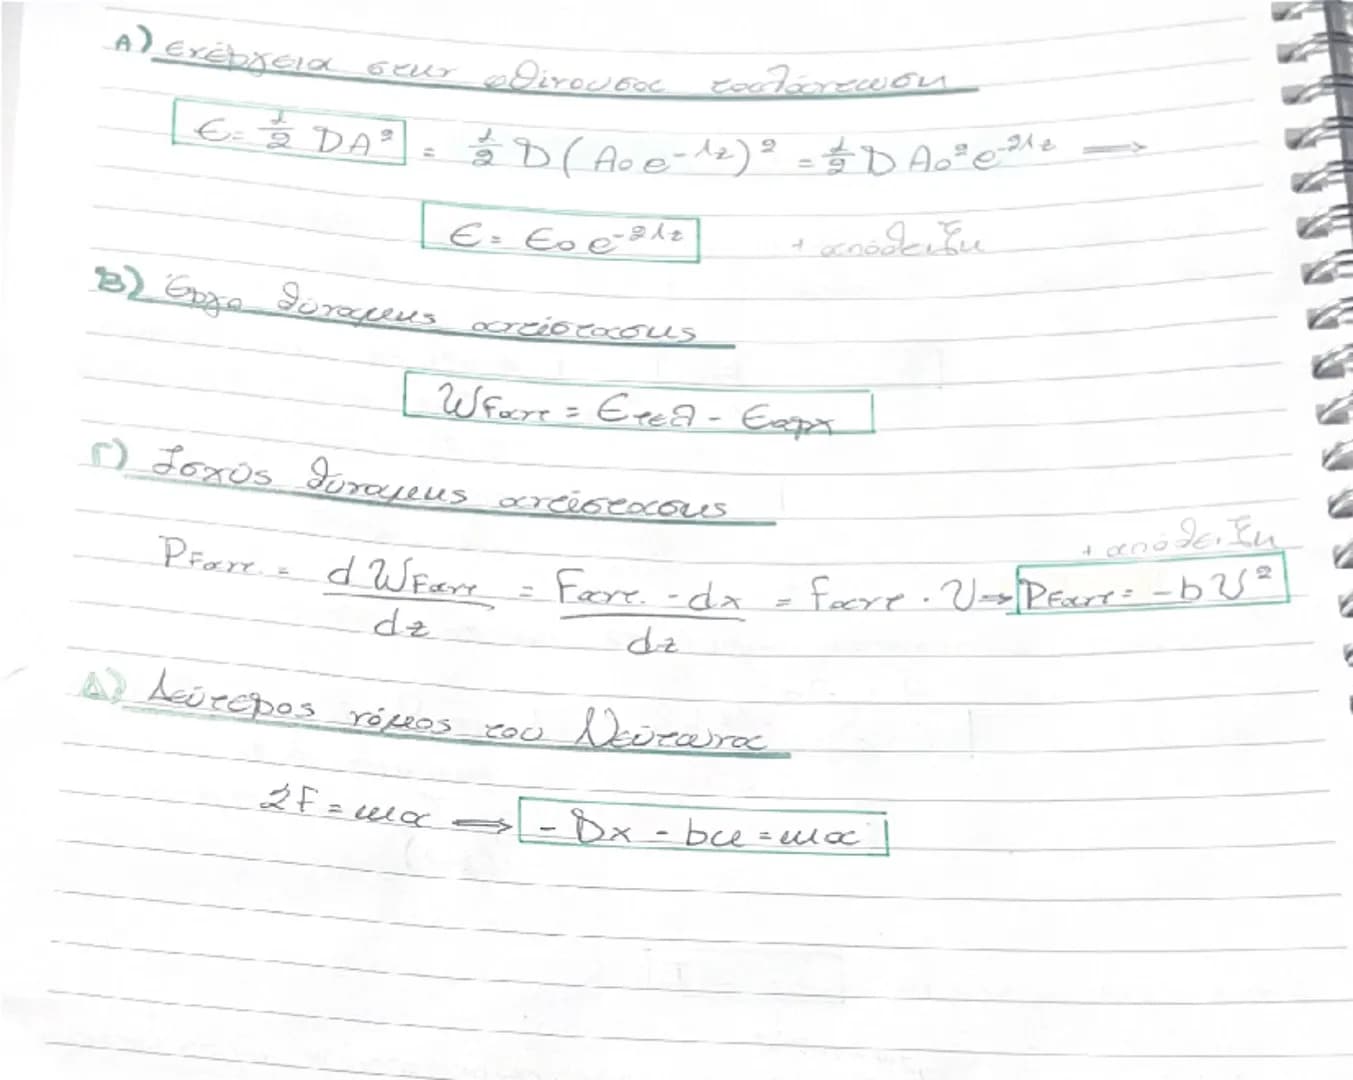 Α) Ενέργεια στην φθίνουσα ταλάντωση
E = 1/2 DA² = 1/2 D(A₀e^-Λt)² = 1/2 DA₀²e^-2Λt ⟹
E = E₀e^-2Λt + απόδειξη
Β) Έργο δύναμης αντίστασης
WFαντ = Eτελ - Eαρχ
Γ) Ισχύς δύναμης αντίστασης
+ απόδειξη
PFαντ. = dWFαντ/dt = Fαντ. · dx/dt = Fαντ · υ ⟹ PFαντ = -bυ²
Δ) Δεύτερος νόμος του Νεύτωνα
ΣF = mα ⟹ -Dx - bυ = mα